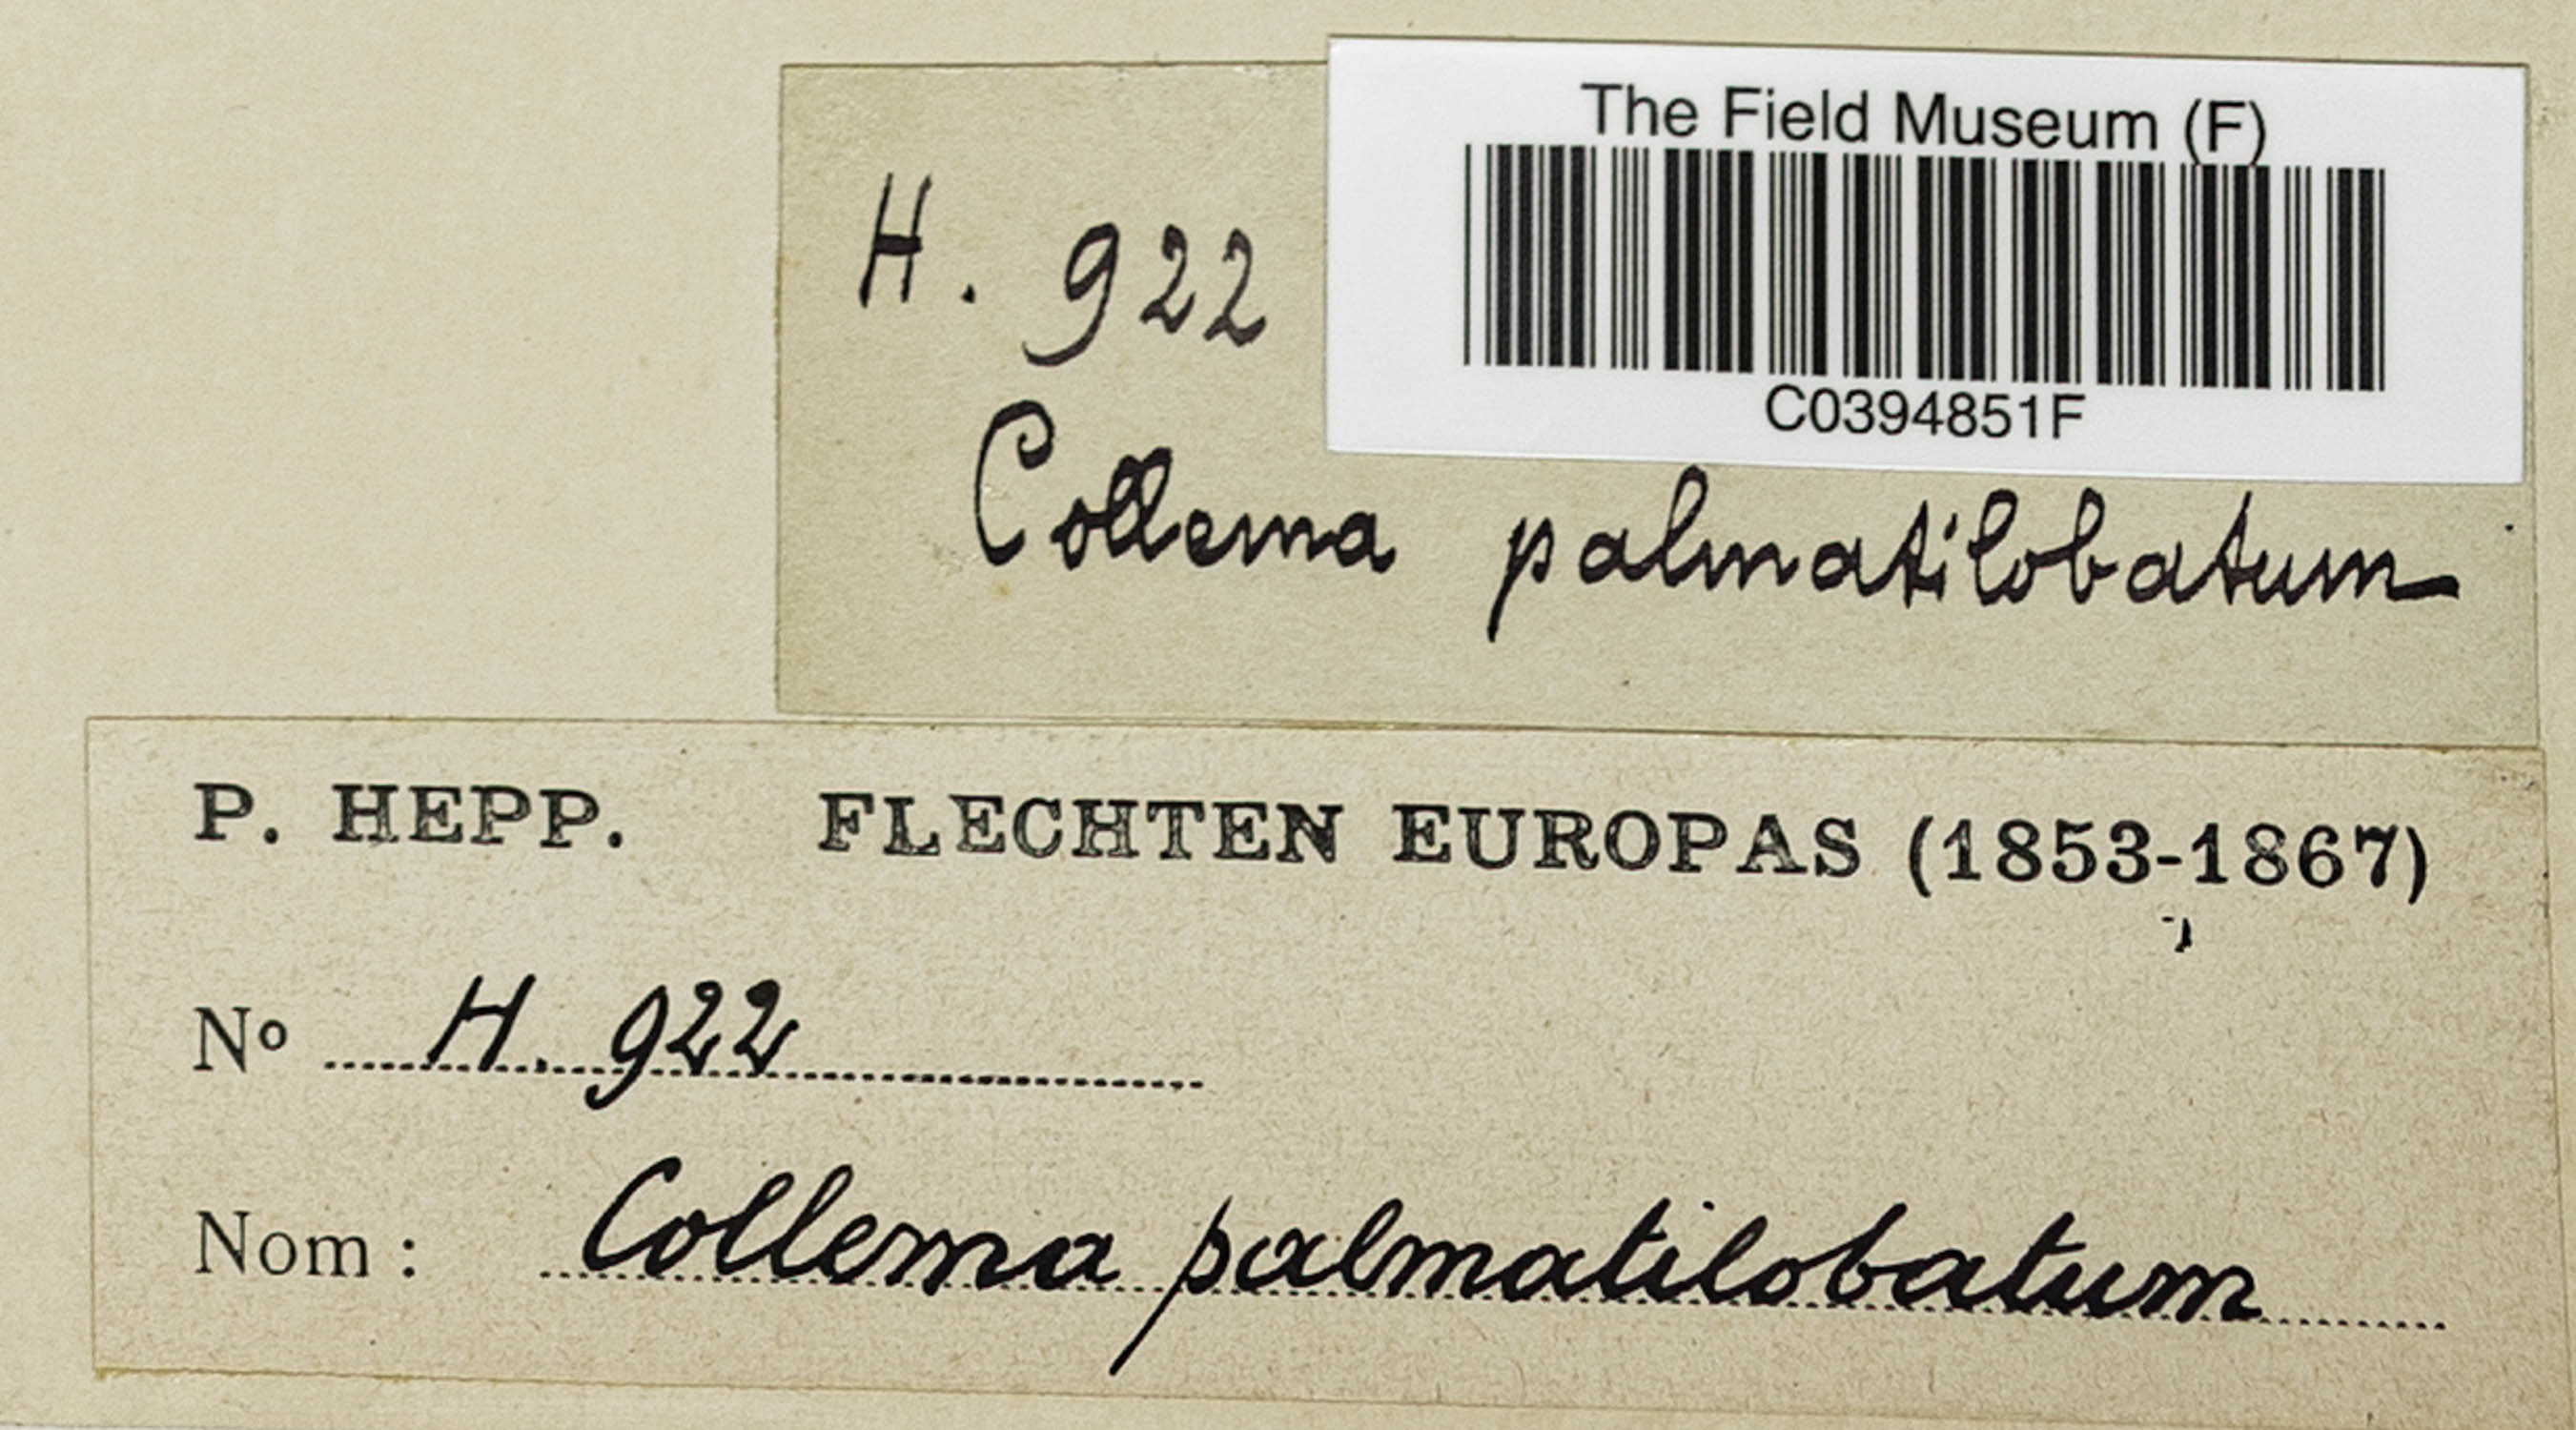 The Field Museum (F)
C0394851F
H. 922
Collema palmatilobatum
P. HEPP. FLECHTEN EUROPAS (1853-1867)
Nº H. 922
Nom : Collema palmatilobatum